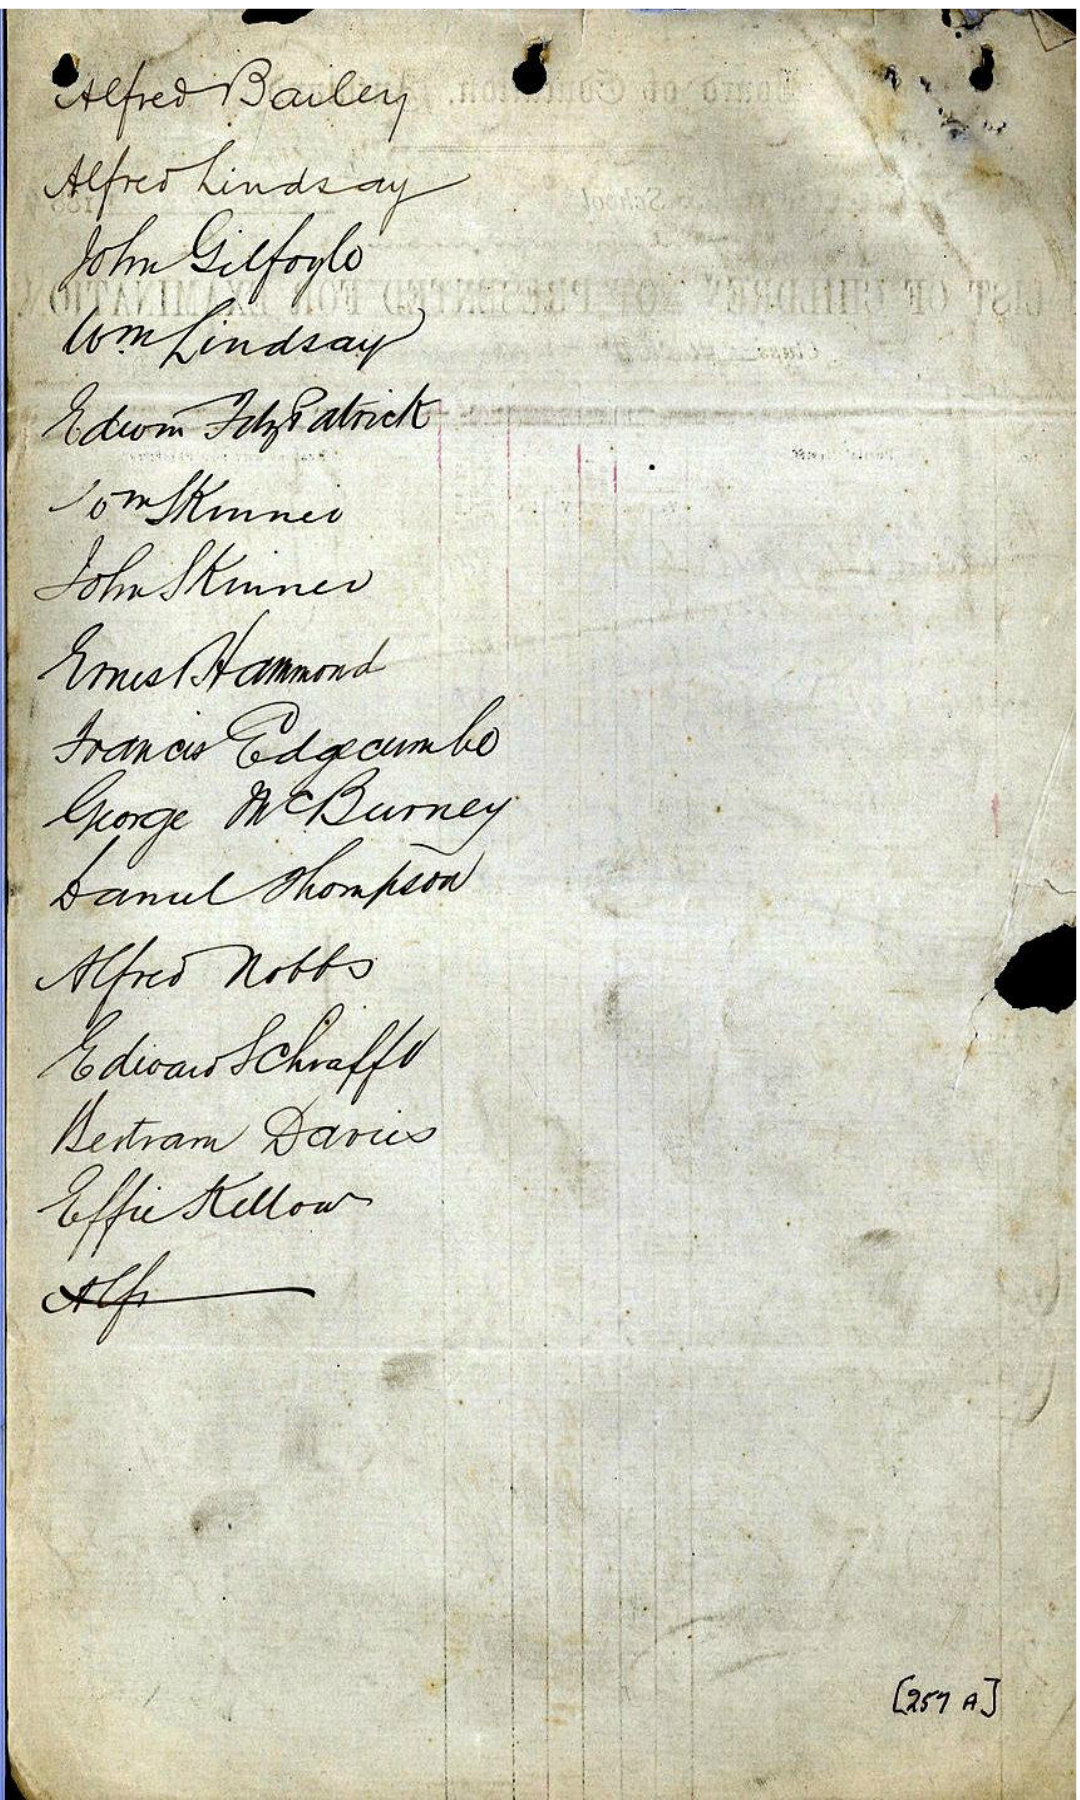 Alfred Bailey
Alfred Lindsay
John Gilfoyle
Wm Lindsay
Edwin FitzPatrick
Wm Skinner
John Skinner
Ernest Hammond
Francis Edgecumbe
George McBurney
Daniel Thompson
Alfred Nobbs
Edward Schraffe
Bertram Davies
Effie Kellow
Alfr
[257 A]